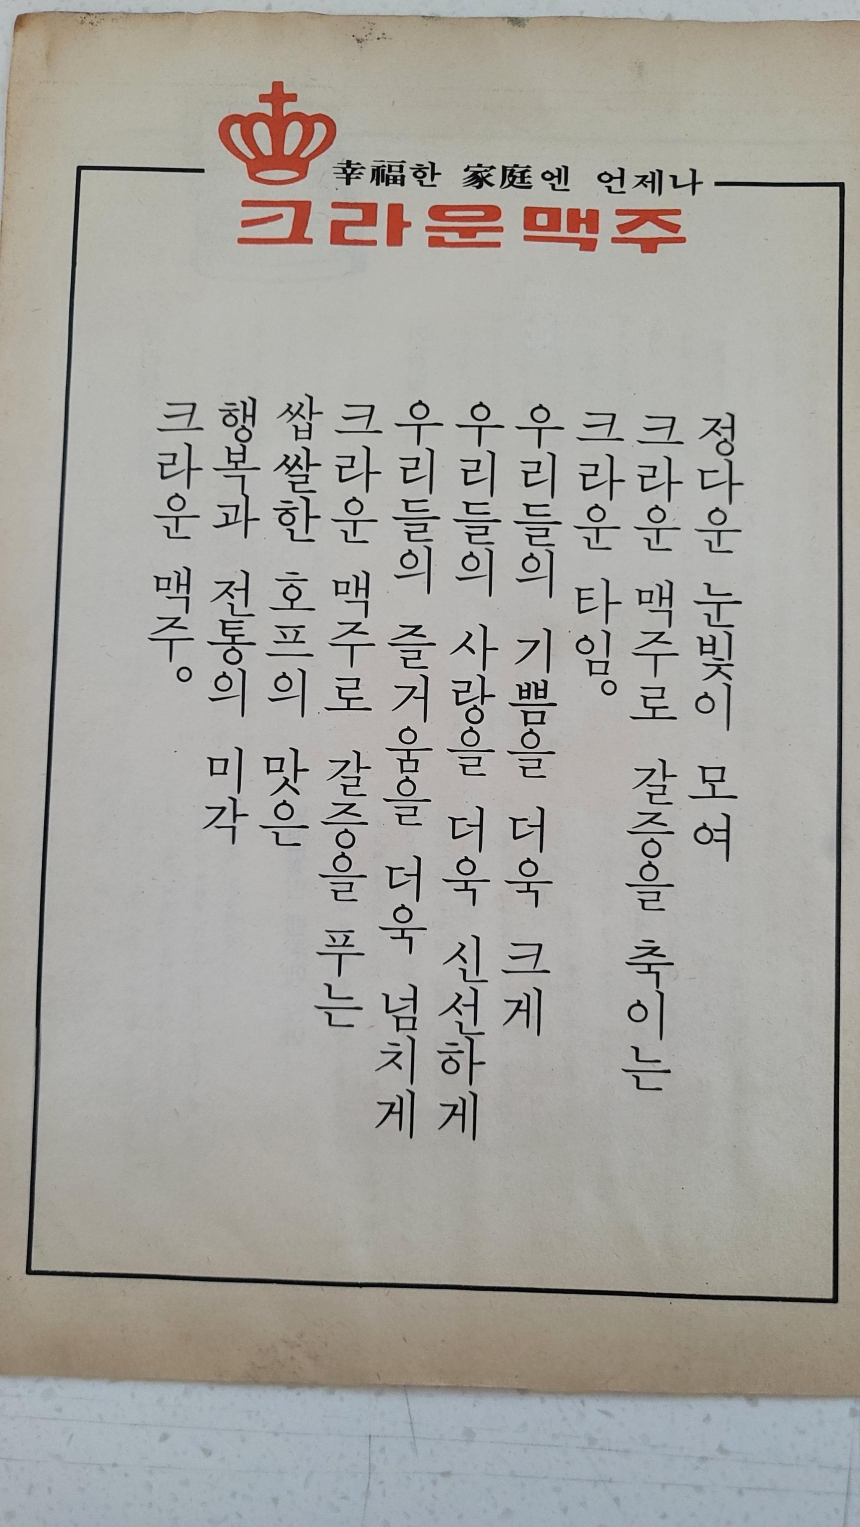 幸福한 家庭엔 언제나
크라운맥주
정다운 눈빛이 모여
크라운 맥주로 갈증을 축이는
크라운 타임。
우리들의 기쁨을 더욱 크게
우리들의 사랑을 더욱 신선하게
우리들의 즐거움을 더욱 넘치게
크라운 맥주로 갈증을 푸는
쌉쌀한 호프의 맛은
행복과 전통의 미각
크라운 맥주。